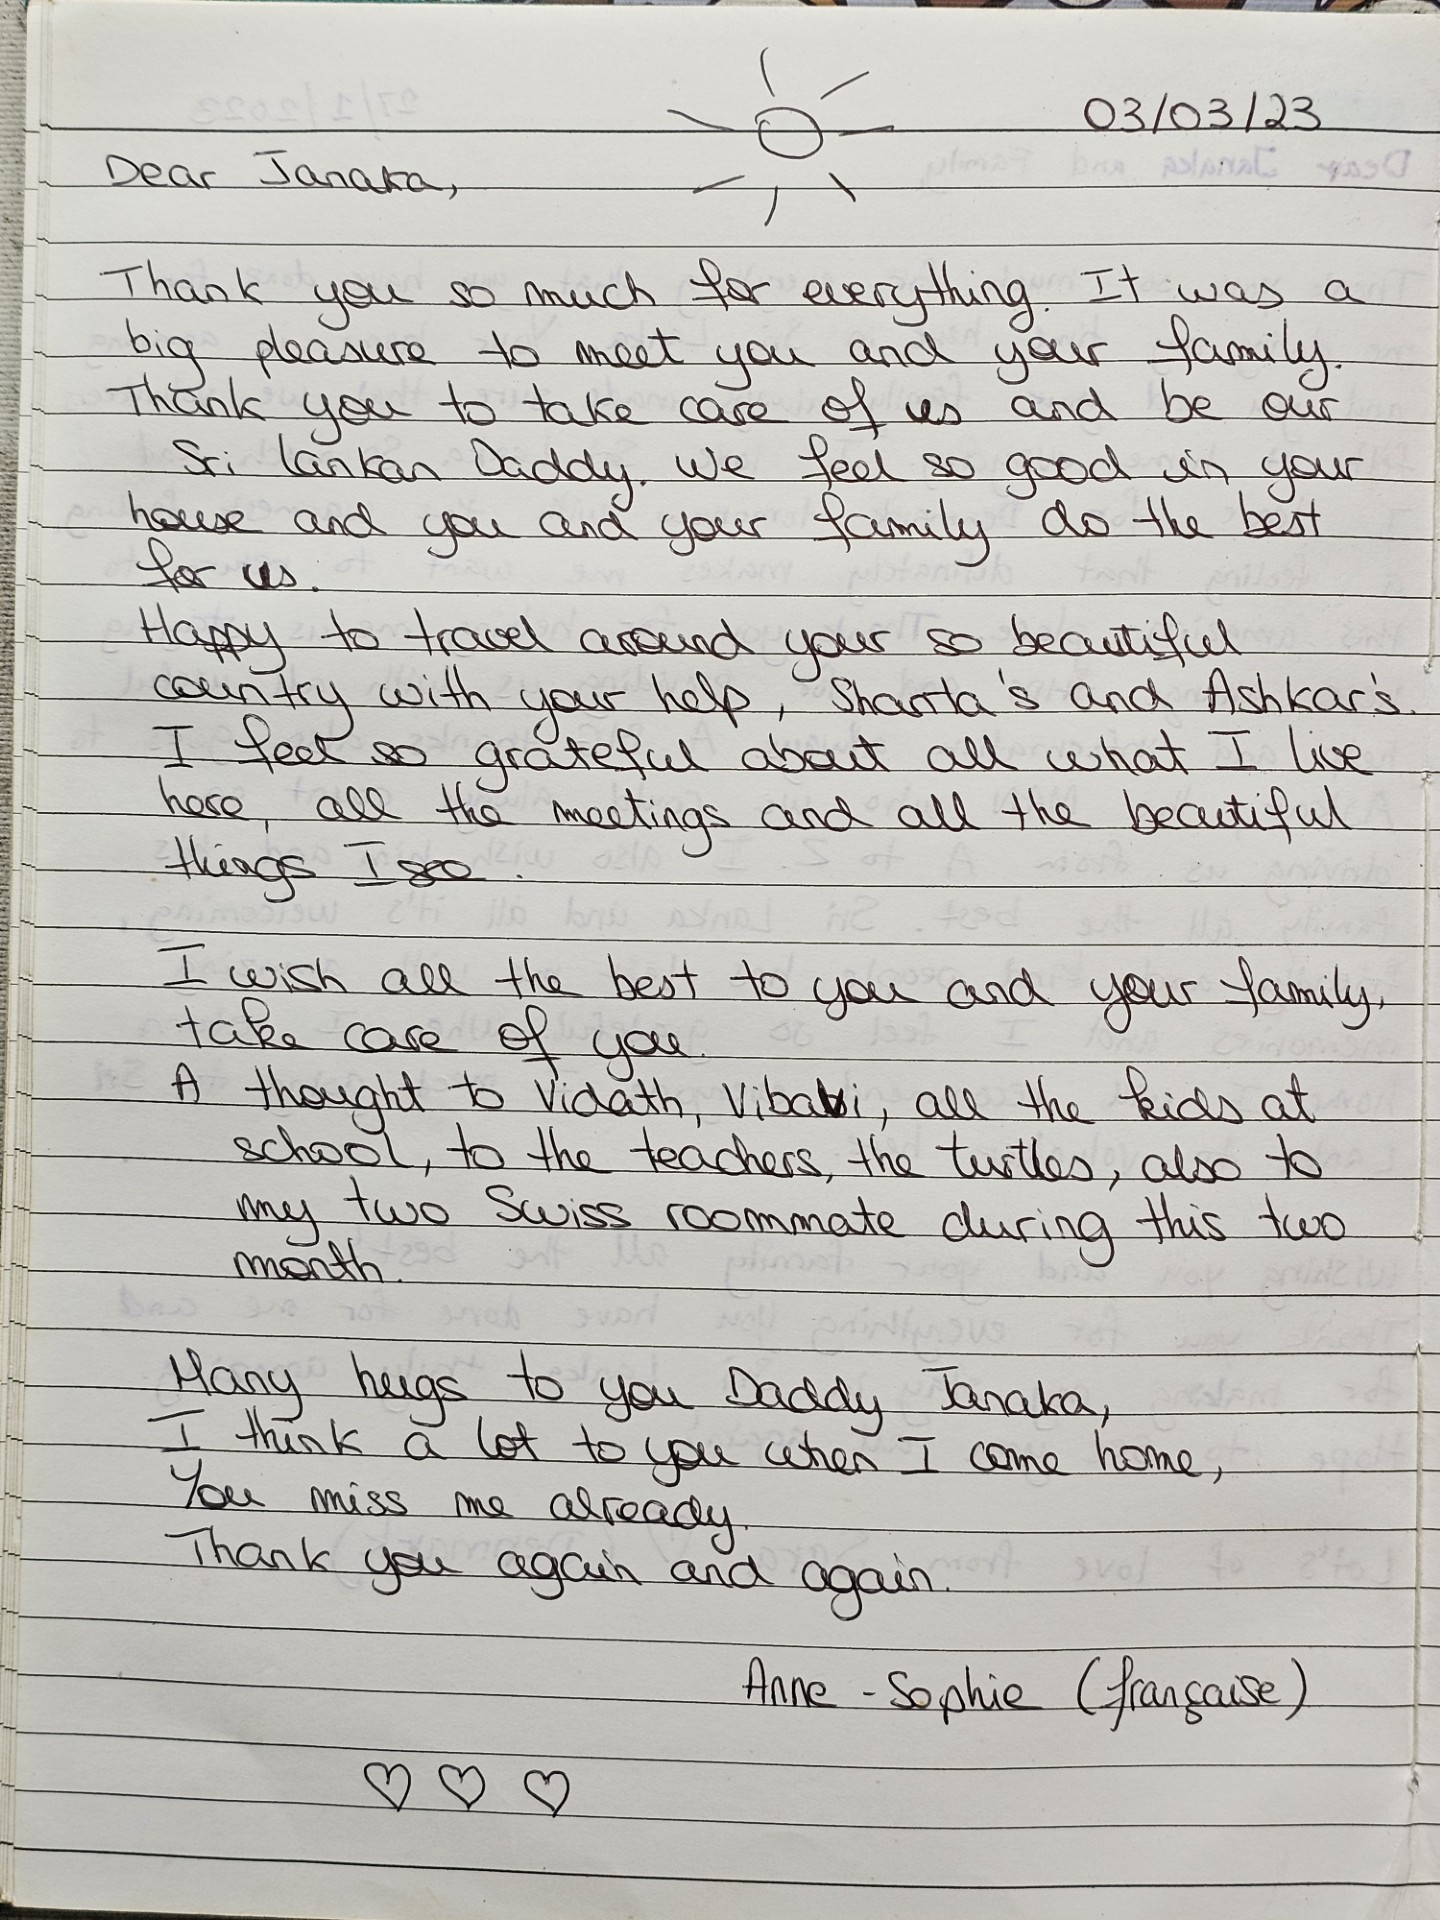 03/03/23
Dear Janaka,
Thank you so much for everything. It was a
big pleasure to meet you and your family.
Thank you to take care of us and be our
Sri lankan Daddy. We feel so good in your
house and you and your family do the best
for us.
Happy to travel around your so beautiful
country with your help, Shanta's and Ashkar's.
I feel so grateful about all what I live
here, all the meetings and all the beautiful
things I see.
I wish all the best to you and your family,
take care of you.
A thought to Vidath, Vibavi, all the kids at
school, to the teachers, the turtles, also to
my two Swiss roommate during this two
month.
Many hugs to you Daddy Janaka,
I think a lot to you when I come home,
You miss me already.
Thank you again and again.
Anne-Sophie (française)